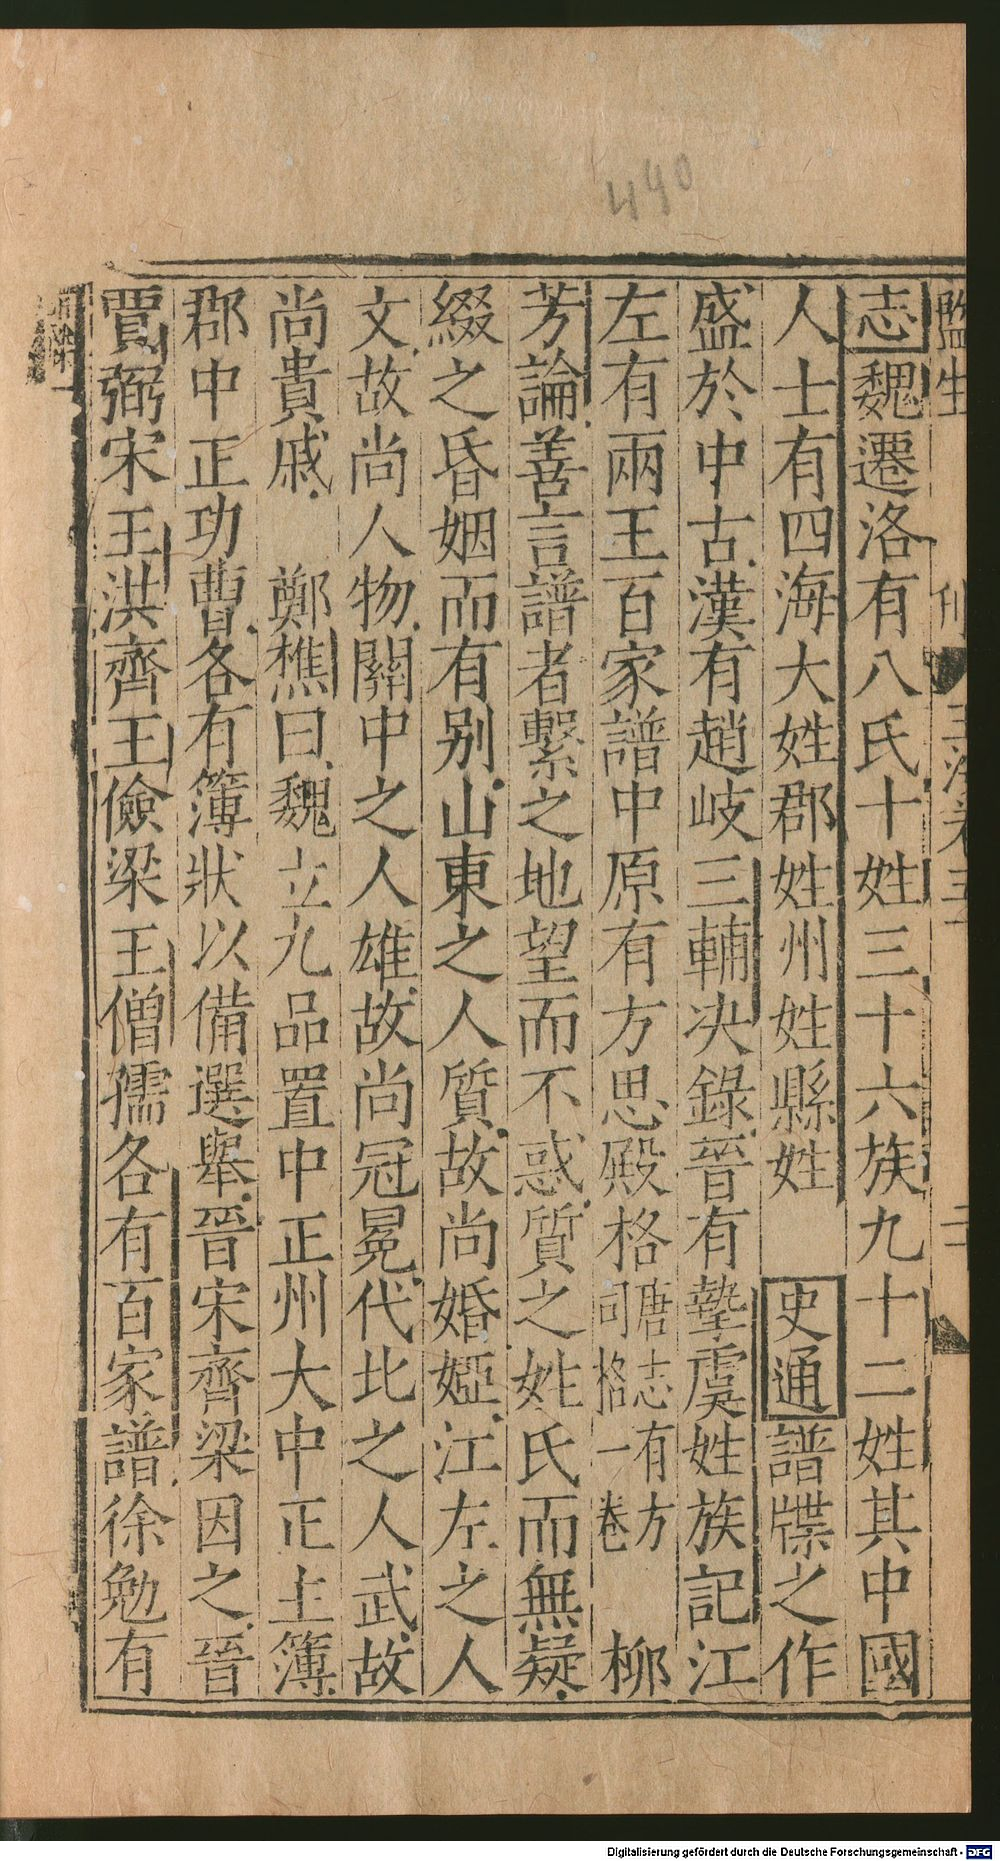 490
志魏遷洛有八氏十姓三十六族九十二姓其中國
人士有四海大姓郡姓州姓縣姓 史通譜牒之作
盛於中古漢有趙岐三輔决錄晉有摯虞姓族記江
左有兩王百家譜中原有方思殿格唐志有方司格一卷 柳
芳論善言譜者繫之地望而不惑質之姓氏而無疑
綴之昏姻而有别山東之人質故尚婚婭江左之人
文故尚人物關中之人雄故尚冠冕代北之人武故
尚貴戚 鄭樵曰魏立九品置中正州大中正主簿
郡中正功曹各有簿狀以備選舉晉宋齊梁因之晉
賈弼宋王洪齊王儉梁王僧孺各有百家譜徐勉有
Digitalisierung gefördert durch die Deutsche Forschungsgemeinschaft - DFG